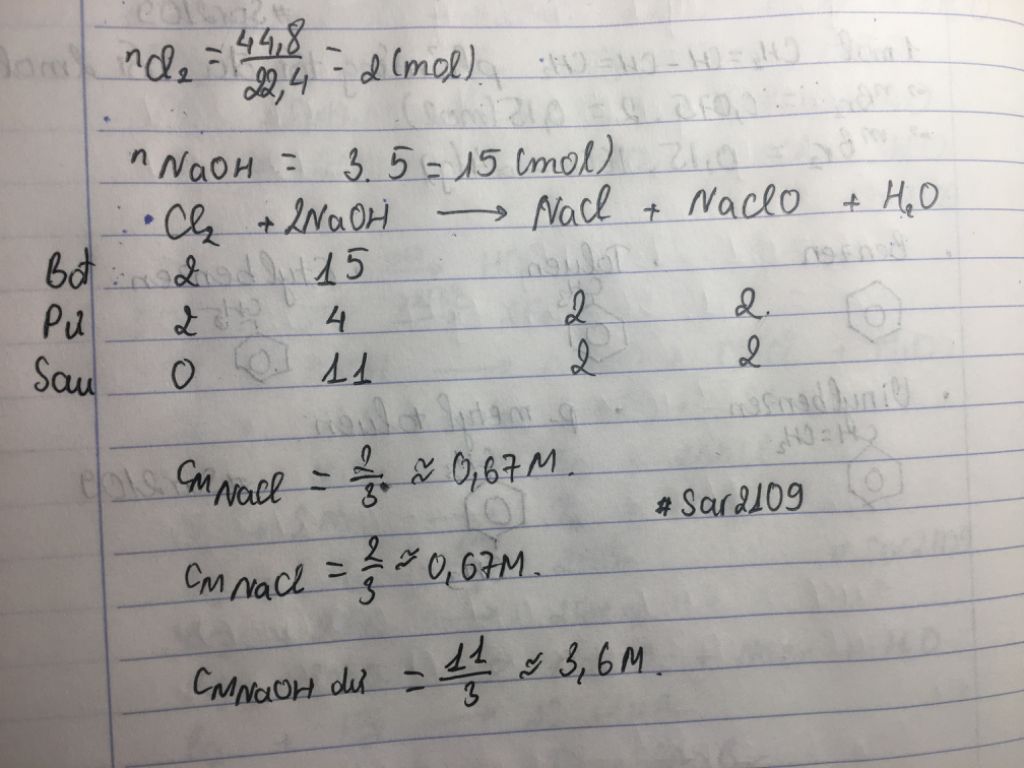 nCl₂ = 44,8/22,4 = 2 (mol).
nNaOH = 3.5 = 15 (mol)
Cl₂ + 2NaOH → NaCl + NaClO + H₂O
Bđ 2 15
Pư 2 4 2 2.
Sau 0 11 2 2
CMNaCl = 2/3 ≈ 0,67M.
#Sar2109
CMNaCl = 2/3 ≈ 0,67M.
CMNaOH dư = 11/3 ≈ 3,6M.